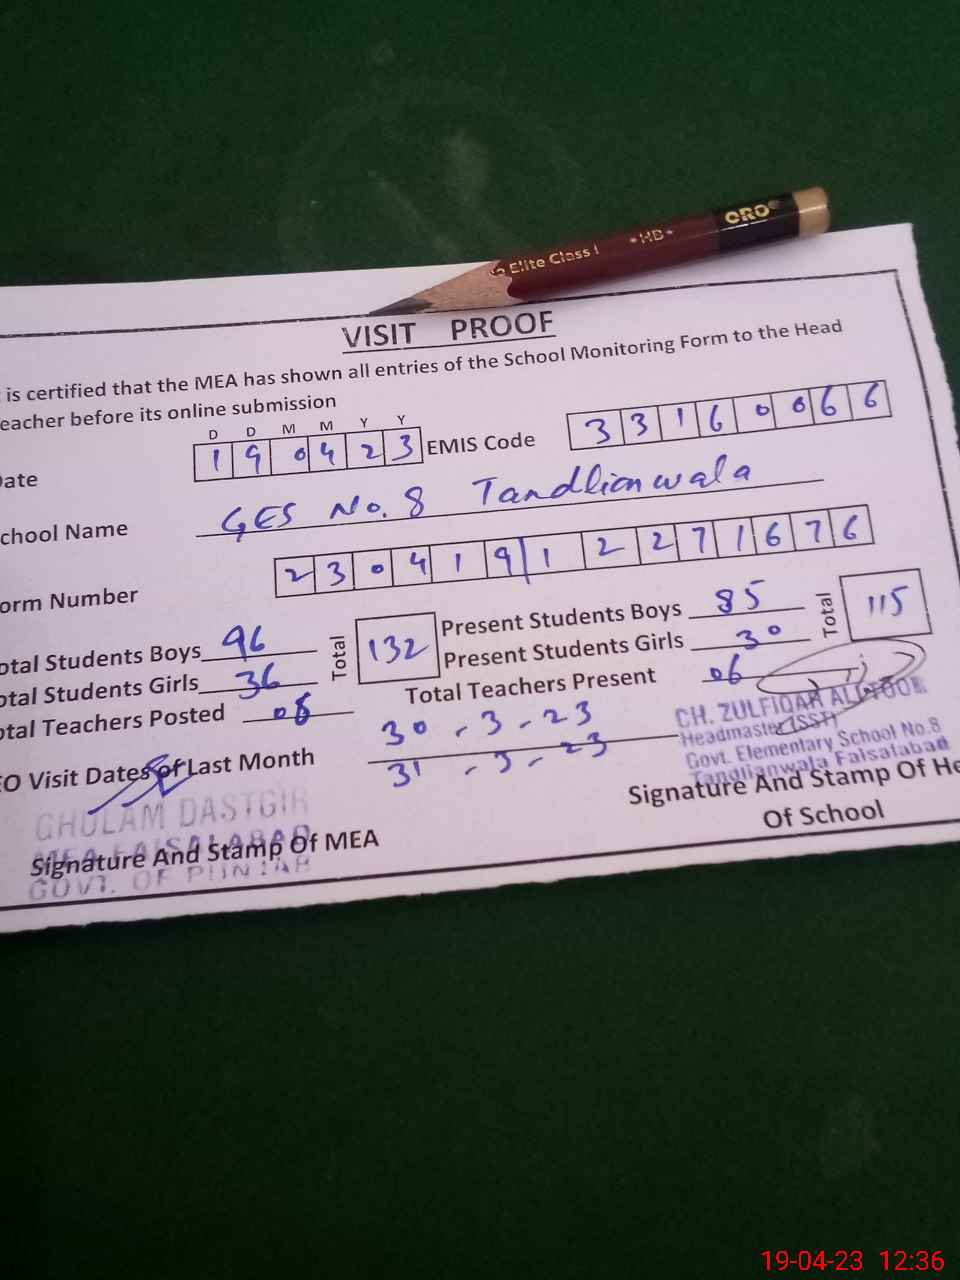 Elite Class I •HB• ORO
VISIT PROOF
is certified that the MEA has shown all entries of the School Monitoring Form to the Head
eacher before its online submission
D D M M Y Y
ate 1 9 0 4 2 3 EMIS Code 3 3 1 6 0 0 6 6
chool Name GES No. 8 Tandlianwala
orm Number 2 3 0 4 1 9 1 2 2 7 1 6 7 6
otal Students Boys 96 Total 132 Present Students Boys 85 Total 115
otal Students Girls 36 Present Students Girls 30
otal Teachers Posted Total Teachers Present 06
O Visit Dates of Last Month 30 - 3 - 23
31 - 3 - 23
CH. ZULFIQAR ALI
Headmaster (SST)
Govt. Elementary School No.8
Tandlianwala Faisalabad
Signature And Stamp Of He
Of School
GHULAM DASTGIR
MEA FAISALABAD
GOVT. OF PUNJAB
Signature And Stamp Of MEA
19-04-23 12:36